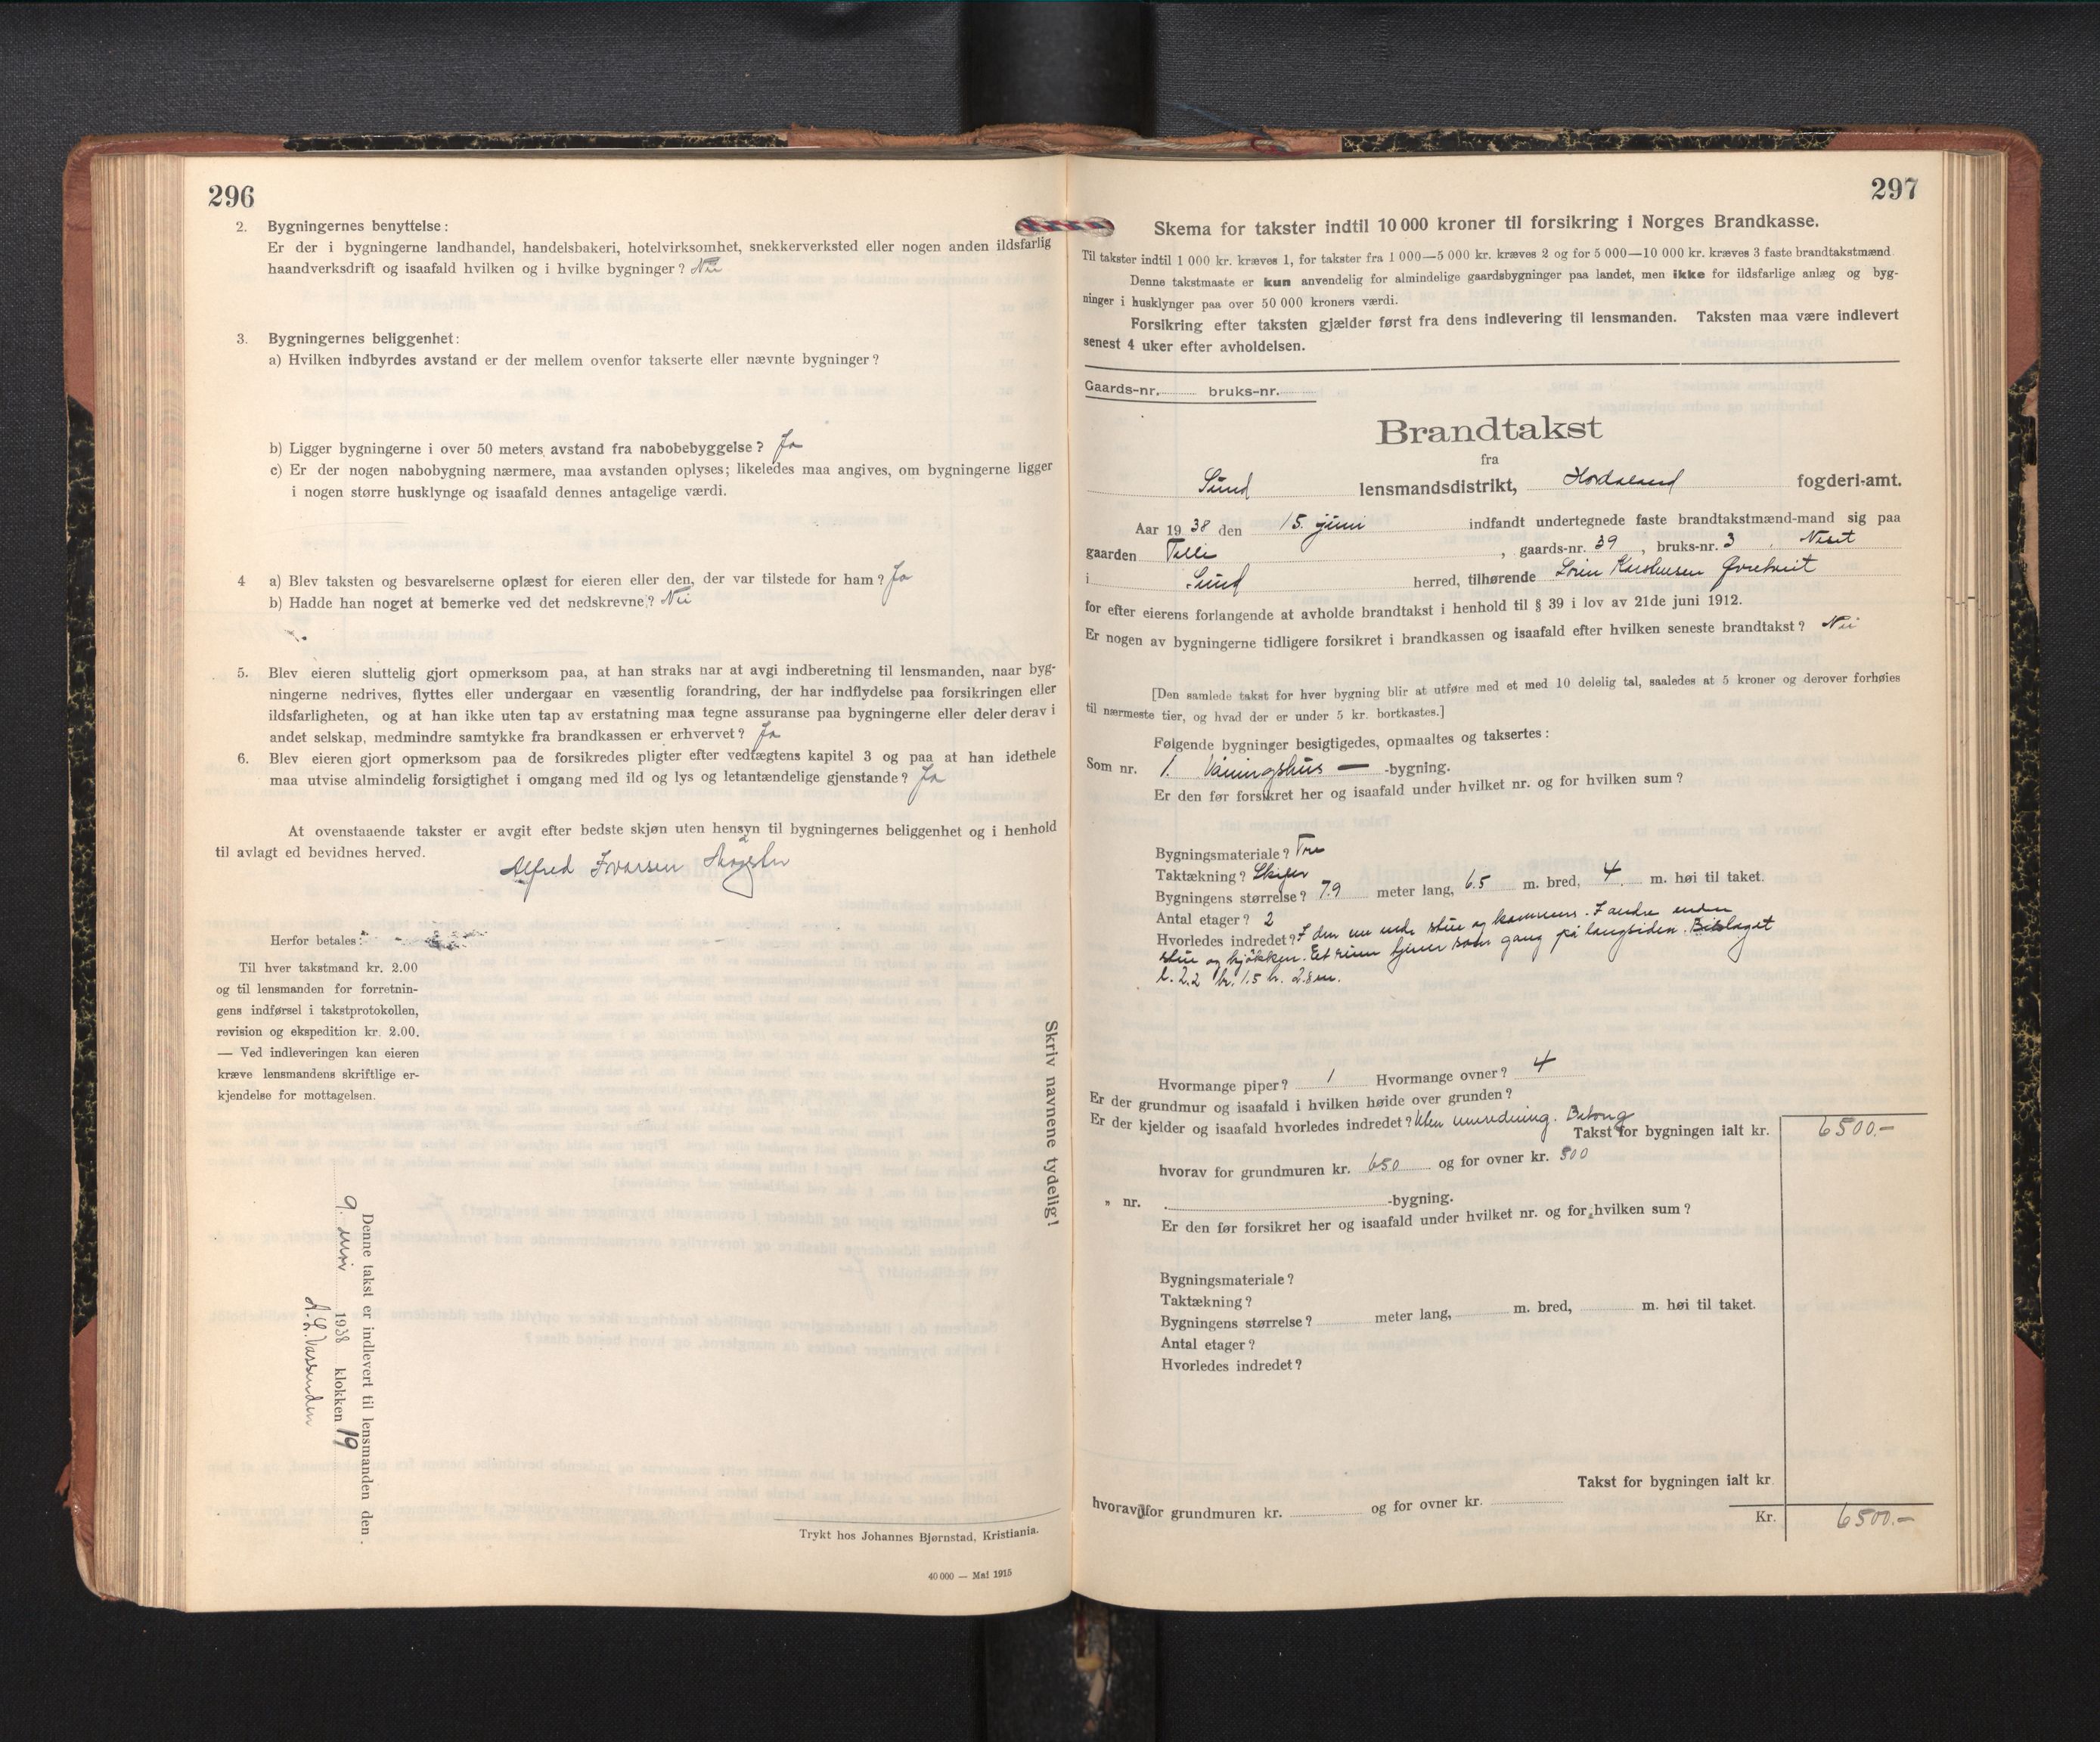 296
2. Bygningernes benyttelse:
Er der i bygningerne landhandel, handelsbakeri, hotelvirksomhet, snekkerverksted eller nogen anden ildsfarlig
haandverksdrift og isaafald hvilken og i hvilke bygninger? Nei
3. Bygningernes beliggenhet:
a) Hvilken indbyrdes avstand er der mellem ovenfor takserte eller nævnte bygninger?
b) Ligger bygningerne i over 50 meters avstand fra nabobebyggelse? Ja
c) Er der nogen nabobygning nærmere, maa avstanden oplyses; likeledes maa angives, om bygningerne ligger
i nogen større husklynge og isaafald dennes antagelige værdi.
4 a) Blev taksten og besvarelserne oplæst for eieren eller den, der var tilstede for ham? Ja
b) Hadde han noget at bemerke ved det nedskrevne? Nei
5. Blev eieren sluttelig gjort opmerksom paa, at han straks har at avgi indberetning til lensmanden, naar byg-
ningerne nedrives, flyttes eller undergaar en væsentlig forandring, der har indflydelse paa forsikringen eller
ildsfarligheten, og at han ikke uten tap av erstatning maa tegne assuranse paa bygningerne eller deler derav i
andet selskap, medmindre samtykke fra brandkassen er erhvervet? Ja
6. Blev eieren gjort opmerksom paa de forsikredes pligter efter vedtægtens kapitel 3 og paa at han idethele
maa utvise almindelig forsigtighet i omgang med ild og lys og letantændelige gjenstande? Ja
At ovenstaaende takster er avgit efter bedste skjøn uten hensyn til bygningernes beliggenhet og i henhold
til avlagt ed bevidnes herved.
Alfred Ivarsen
Herfor betales:
Til hver takstmand kr. 2.00
og til lensmanden for forretnin-
gens indførsel i takstprotokollen,
revision og ekspedition kr. 2.00.
— Ved indleveringen kan eieren
kræve lensmandens skriftlige er-
kjendelse for mottagelsen.
Skriv navnene tydelig!
Denne takst er indlevert til lensmanden den
9. 1938 klokken 19
Trykt hos Johannes Bjørnstad, Kristiania.
40 000 — Mai 1915
297
Skema for takster indtil 10 000 kroner til forsikring i Norges Brandkasse.
Til takster indtil 1 000 kr. kræves 1, for takster fra 1 000—5 000 kr. kræves 2 og for 5 000—10 000 kr. kræves 3 faste brandtakstmænd.
Denne takstmaate er kun anvendelig for almindelige gaardsbygninger paa landet, men ikke for ildsfarlige anlæg og byg-
ninger i husklynger paa over 50 000 kroners værdi.
Forsikring efter taksten gjælder først fra dens indlevering til lensmanden. Taksten maa være indlevert
senest 4 uker efter avholdelsen.
Gaards-nr. bruks-nr.
Brandtakst
fra
Sund lensmandsdistrikt, Hordaland fogderi-amt.
Aar 1938 den 15. juni indfandt undertegnede faste brandtakstmænd-mand sig paa
gaarden , gaards-nr. 39, bruks-nr. 3
i Sund herred, tilhørende
for efter eierens forlangende at avholde brandtakst i henhold til § 39 i lov av 21de juni 1912.
Er nogen av bygningerne tidligere forsikret i brandkassen og isaafald efter hvilken seneste brandtakst? Nei
[Den samlede takst for hver bygning blir at utføre med et med 10 delelig tal, saaledes at 5 kroner og derover forhøies
til nærmeste tier, og hvad der er under 5 kr. bortkastes.]
Følgende bygninger besigtigedes, opmaaltes og taksertes:
Som nr. 1. Våningshus — -bygning.
Er den før forsikret her og isaafald under hvilket nr. og for hvilken sum?
Bygningsmateriale? Tre
Taktækning? Skifer
Bygningens størrelse? 7.9 meter lang, 6.5 m. bred, 4 m. høi til taket.
Antal etager? 2
Hvorledes indredet? I den ene ende stue og kammers. I andre enden
stue og kjøkken. Et rum tjener som gang på langsiden. Bislaget
l. 2.2 br. 1.5 h. 2.8 m.
Hvormange piper? 1 Hvormange ovner? 4
Er der grundmur og isaafald i hvilken høide over grunden?
Er der kjelder og isaafald hvorledes indredet? Uten innredning. Betong
Takst for bygningen ialt kr. 6500.-
hvorav for grundmuren kr. 650 og for ovner kr. 500
" nr. -bygning.
Er den før forsikret her og isaafald under hvilket nr. og for hvilken sum?
Bygningsmateriale?
Taktækning?
Bygningens størrelse? meter lang, m. bred, m. høi til taket.
Antal etager?
Hvorledes indredet?
Takst for bygningen ialt kr.
hvorav for grundmuren kr. og for ovner kr.
Kr. 6500.-